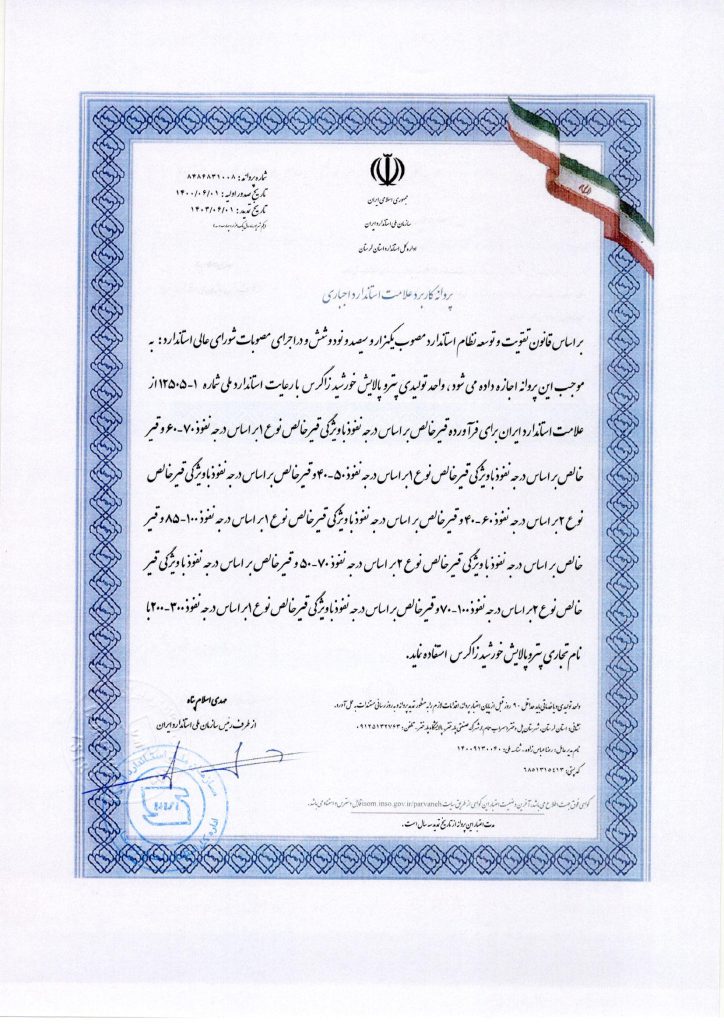 شماره پروانه: ۸۴۸۶۸۳۱۰۰۸
تاریخ صدور اولیه: ۱۴۰۰/۰۶/۰۱
تاریخ تمدید: ۱۴۰۳/۰۶/۰۱
جمهوری اسلامی ایران
سازمان ملی استاندارد ایران
اداره کل استاندارد استان لرستان
پروانه کاربرد علامت استاندارد اجباری
بر اساس قانون تقویت و توسعه نظام استاندارد مصوب یکهزار و سیصد و نود و شش و در اجرای مصوبات شورای عالی استاندارد: به
موجب این پروانه اجازه داده می شود، واحد تولیدی پترو پالایش خورشید زاگرس با رعایت استاندارد ملی شماره ۱-۱۲۵۰۵ از
علامت استاندارد ایران برای فرآورده قیر خالص بر اساس درجه نفوذ با ویژگی قیر خالص نوع ۱ بر اساس درجه نفوذ ۷۰-۶۰ و قیر
خالص بر اساس درجه نفوذ با ویژگی قیر خالص نوع ۱ بر اساس درجه نفوذ ۵۰-۴۰ و قیر خالص بر اساس درجه نفوذ با ویژگی قیر خالص
نوع ۲ بر اساس درجه نفوذ ۶۰-۴۰ و قیر خالص بر اساس درجه نفوذ با ویژگی قیر خالص نوع ۱ بر اساس درجه نفوذ ۱۰۰-۸۵ و قیر
خالص بر اساس درجه نفوذ با ویژگی قیر خالص نوع ۲ بر اساس درجه نفوذ ۷۰-۵۰ و قیر خالص بر اساس درجه نفوذ با ویژگی قیر
خالص نوع ۲ بر اساس درجه نفوذ ۱۰۰-۷۰ و قیر خالص بر اساس درجه نفوذ با ویژگی قیر خالص نوع ۱ بر اساس درجه نفوذ ۳۰۰-۲۰۰ با
نام تجاری پترو پالایش خورشید زاگرس استفاده نماید.
مهدی اسلام پناه
از طرف رئیس سازمان ملی استاندارد ایران
واحد تولیدی و یا خدماتی باید حداقل ۹۰ روز قبل از پایان اعتبار پروانه اقدامات لازم را به منظور تمدید پروانه و به روز رسانی مستندات به عمل آورد.
نشانی: استان لرستان، شهرستان پلدختر، تلفن: ۰۹۱۲۵۱۳۲۷۶۳
نام مدیر عامل: رضا عباس زاده، شناسه ملی: ۱۴۰۰۹۱۳۰۰۴۰
کد پستی: ۶۸۵۱۳۱۵۴۱۳
گواهی فوق جهت اطلاع می باشد، آخرین وضعیت اعتبار این گواهی از طریق سایت isom.inso.gov.ir/parvaneh قابل دسترس و استناد می باشد.
مدت اعتبار این پروانه از تاریخ تمدید سه سال است.